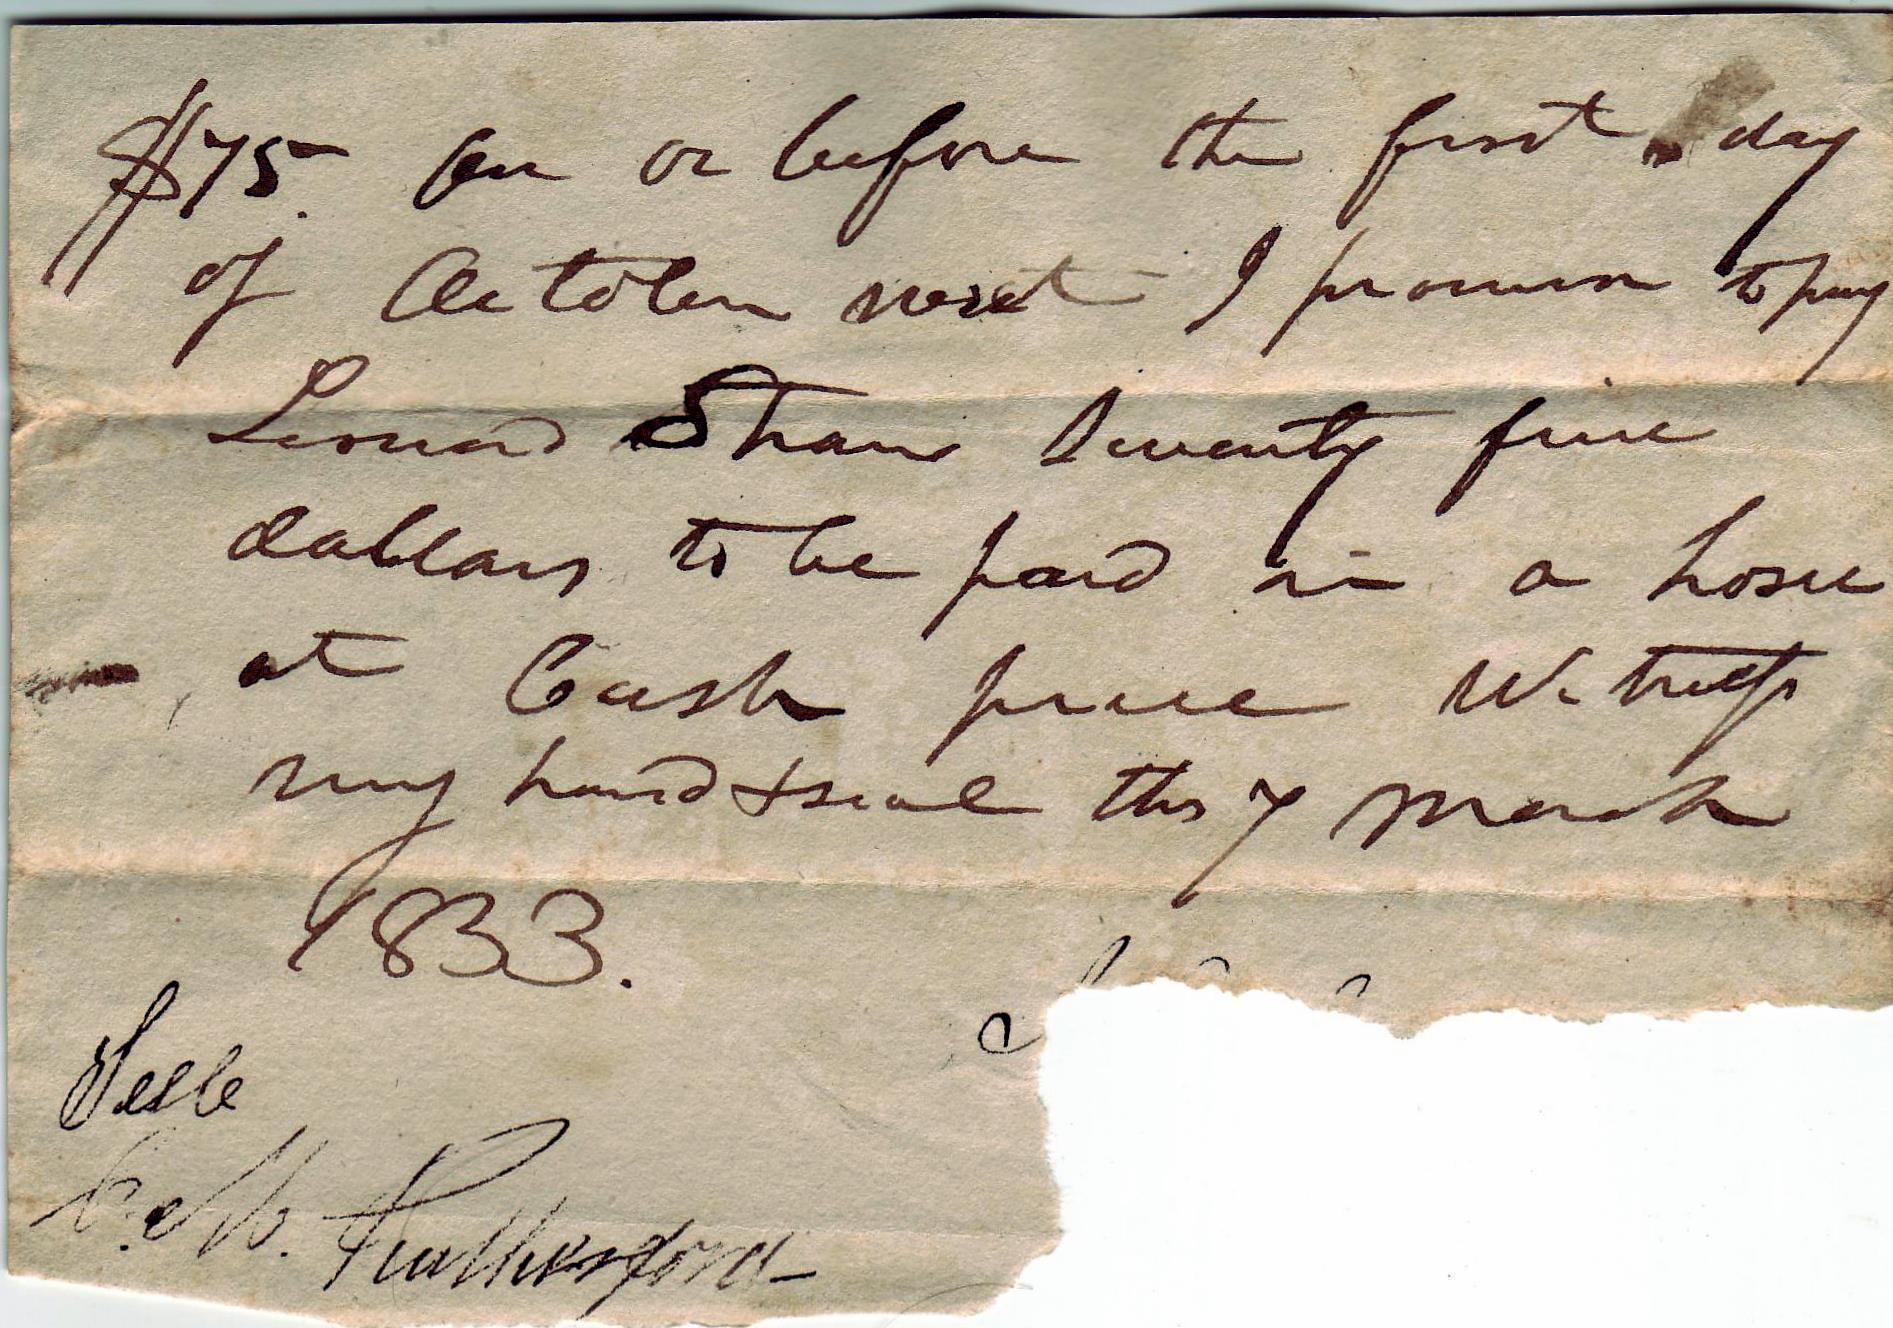 $75. On or before the first day
of October next I promise to pay
Leonard Shaw Seventy five
dollars to be paid in a horse
at Cash price Witness
my hand & seal this 7 March
1833.
Teste
C. M. Rutherford